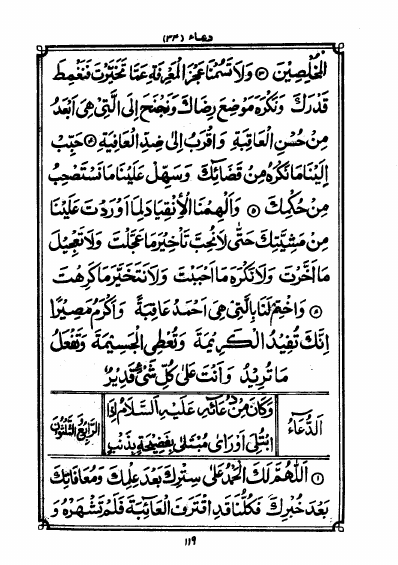 دعاء (٣٤)
الْمُخْلِصِيْنَ ۝٣ وَلَا تَسُمْنَا عَجْزَ الْمَعْرِفَةِ عَمَّا تَخَيَّرْتَ فَنَغْمِطَ
قَدْرَكَ وَنَكْرَهَ مَوْضِعَ رِضَاكَ وَنَجْنَحَ اِلَى الَّتِيْ هِيَ اَبْعَدُ
مِنْ حُسْنِ الْعَاقِبَةِ وَاَقْرَبُ اِلٰى ضِدِّ الْعَافِيَةِ ۝ حَبِّبْ
اِلَيْنَا مَا نَكْرَهُ مِنْ قَضَآئِكَ وَسَهِّلْ عَلَيْنَا مَا نَسْتَصْعِبُ
مِنْ حُكْمِكَ ۝٥ وَاَلْهِمْنَا الْاِنْقِيَادَ لِمَا اَوْرَدْتَ عَلَيْنَا
مِنْ مَشِيَّتِكَ حَتّٰى لَا نُحِبَّ تَاْخِيْرَ مَا عَجَّلْتَ وَلَا تَعْجِيْلَ
مَا اَخَّرْتَ وَلَا نَكْرَهَ مَا اَحْبَبْتَ وَلَا نَتَخَيَّرَ مَا كَرِهْتَ
۝ وَاخْتِمْ لَنَا بِالَّتِيْ هِيَ اَحْمَدُ عَاقِبَةً وَاَكْرَمُ مَصِيْرًا
اِنَّكَ تُفِيْدُ الْكَرِيْمَةَ وَتُعْطِى الْجَسِيْمَةَ وَتَفْعَلُ
مَا تُرِيْدُ وَاَنْتَ عَلٰى كُلِّ شَيْءٍ قَدِيْرٌ
اَلدُّعَآءُ
وَكَانَ مِنْ دُعَآئِهِ عَلَيْهِ السَّلَامُ اِذَا
ابْتُلِيَ اَوْ رَاٰى مُبْتَلًى بِفَضِيْحَةٍ بِذَنْبٍ
الرَّابِعُ وَالثَّلٰثُوْنَ
۝١ اَللّٰهُمَّ لَكَ الْحَمْدُ عَلٰى سِتْرِكَ بَعْدَ عِلْمِكَ وَمُعَافَاتِكَ
بَعْدَ خُبْرِكَ فَكُلُّنَا قَدِ اقْتَرَفَ الْعَآئِبَةَ فَلَمْ تَشْهَرْهُ وَ
١١٩